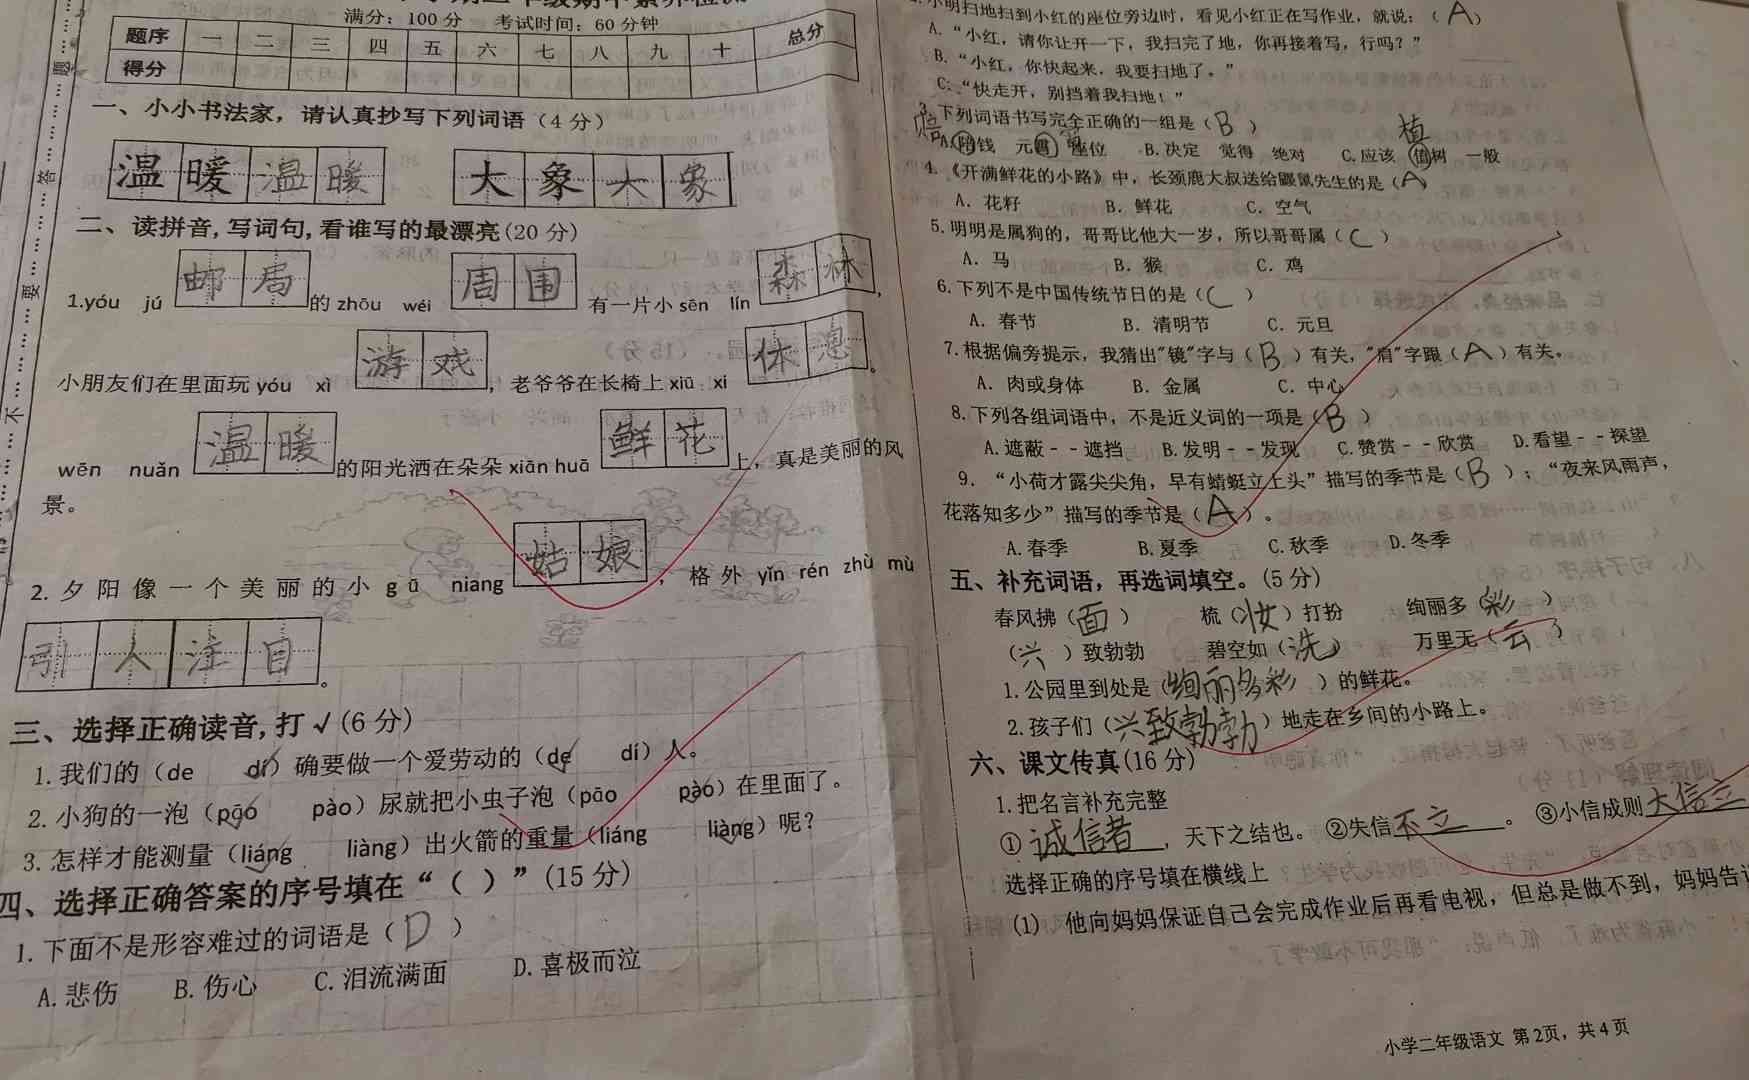 满分：100 分 考试时间：60 分钟
题序 一 二 三 四 五 六 七 八 九 十 总分
得分
一、小小书法家，请认真抄写下列词语（4 分）
温 暖 温 暖 大 象 大 象
二、读拼音,写词句,看谁写的最漂亮(20 分)
邮 局 周 围 森 林
1.yóu jú 的 zhōu wéi 有一片小 sēn lín ，
游 戏 休 息
小朋友们在里面玩 yóu xì ，老爷爷在长椅上 xiū xi 。
温 暖 鲜 花
wēn nuǎn 的阳光洒在朵朵 xiān huā 上，真是美丽的风
景。
姑 娘
2. 夕 阳 像 一 个 美 丽 的 小 g ū niang ， 格 外 yǐn rén zhù mù
引 人 注 目 。
三、选择正确读音,打 √ (6 分)
1. 我们的（de dí）确要做一个爱劳动的（de dí）人。
2. 小狗的一泡（pāo pào）尿就把小虫子泡（pāo pào）在里面了。
3. 怎样才能测量（liáng liàng）出火箭的重量（liáng liàng）呢?
四、选择正确答案的序号填在“（ ）”(15 分)
1. 下面不是形容难过的词语是（ D ）
A. 悲伤 B. 伤心 C. 泪流满面 D. 喜极而泣
小明扫地扫到小红的座位旁边时，看见小红正在写作业，就说：（ A ）
A. “小红，请你让开一下，我扫完了地，你再接着写，行吗？”
B. “小红，你快起来，我要扫地了。”
C: “快走开，别挡着我扫地！”
3. 下列词语书写完全正确的一组是（ B ）
赔 植
A. 陪钱 元 座位 B. 决定 觉得 绝对 C. 应该 值树 一般
4. 《开满鲜花的小路》中，长颈鹿大叔送给鼹鼠先生的是（ A
A. 花籽 B. 鲜花 C. 空气
5. 明明是属狗的，哥哥比他大一岁，所以哥哥属（ C ）
A. 马 B. 猴 C. 鸡
6. 下列不是中国传统节日的是（ C ）
A. 春节 B. 清明节 C. 元旦
7. 根据偏旁提示，我猜出"镜"字与（ B ）有关，"肩"字跟（ A ）有关。
A. 肉或身体 B. 金属 C. 中心
8. 下列各组词语中，不是近义词的一项是（ B ）
A. 遮蔽－－遮挡 B. 发明－－发现 C. 赞赏－－欣赏 D. 看望－－探望
9. “小荷才露尖尖角，早有蜻蜓立上头”描写的季节是（ B ）；“夜来风雨声，
花落知多少”描写的季节是（ A ）。
A. 春季 B. 夏季 C. 秋季 D. 冬季
五、补充词语，再选词填空。(5 分)
春风拂（ 面 ） 梳（ 妆 ）打扮 绚丽多（ 彩 ）
（ 兴 ）致勃勃 碧空如（ 洗 ） 万里无（ 云 ）
1. 公园里到处是（ 绚丽多彩 ）的鲜花。
2. 孩子们（ 兴致勃勃 ）地走在乡间的小路上。
六、课文传真(16 分)
1. 把名言补充完整
① 诚信者 ，天下之结也。 ②失信 不立 。 ③小信成则 大信立
选择正确的序号填在横线上
(1) 他向妈妈保证自己会完成作业后再看电视，但总是做不到，妈妈告
小学二年级语文 第 2页，共 4 页